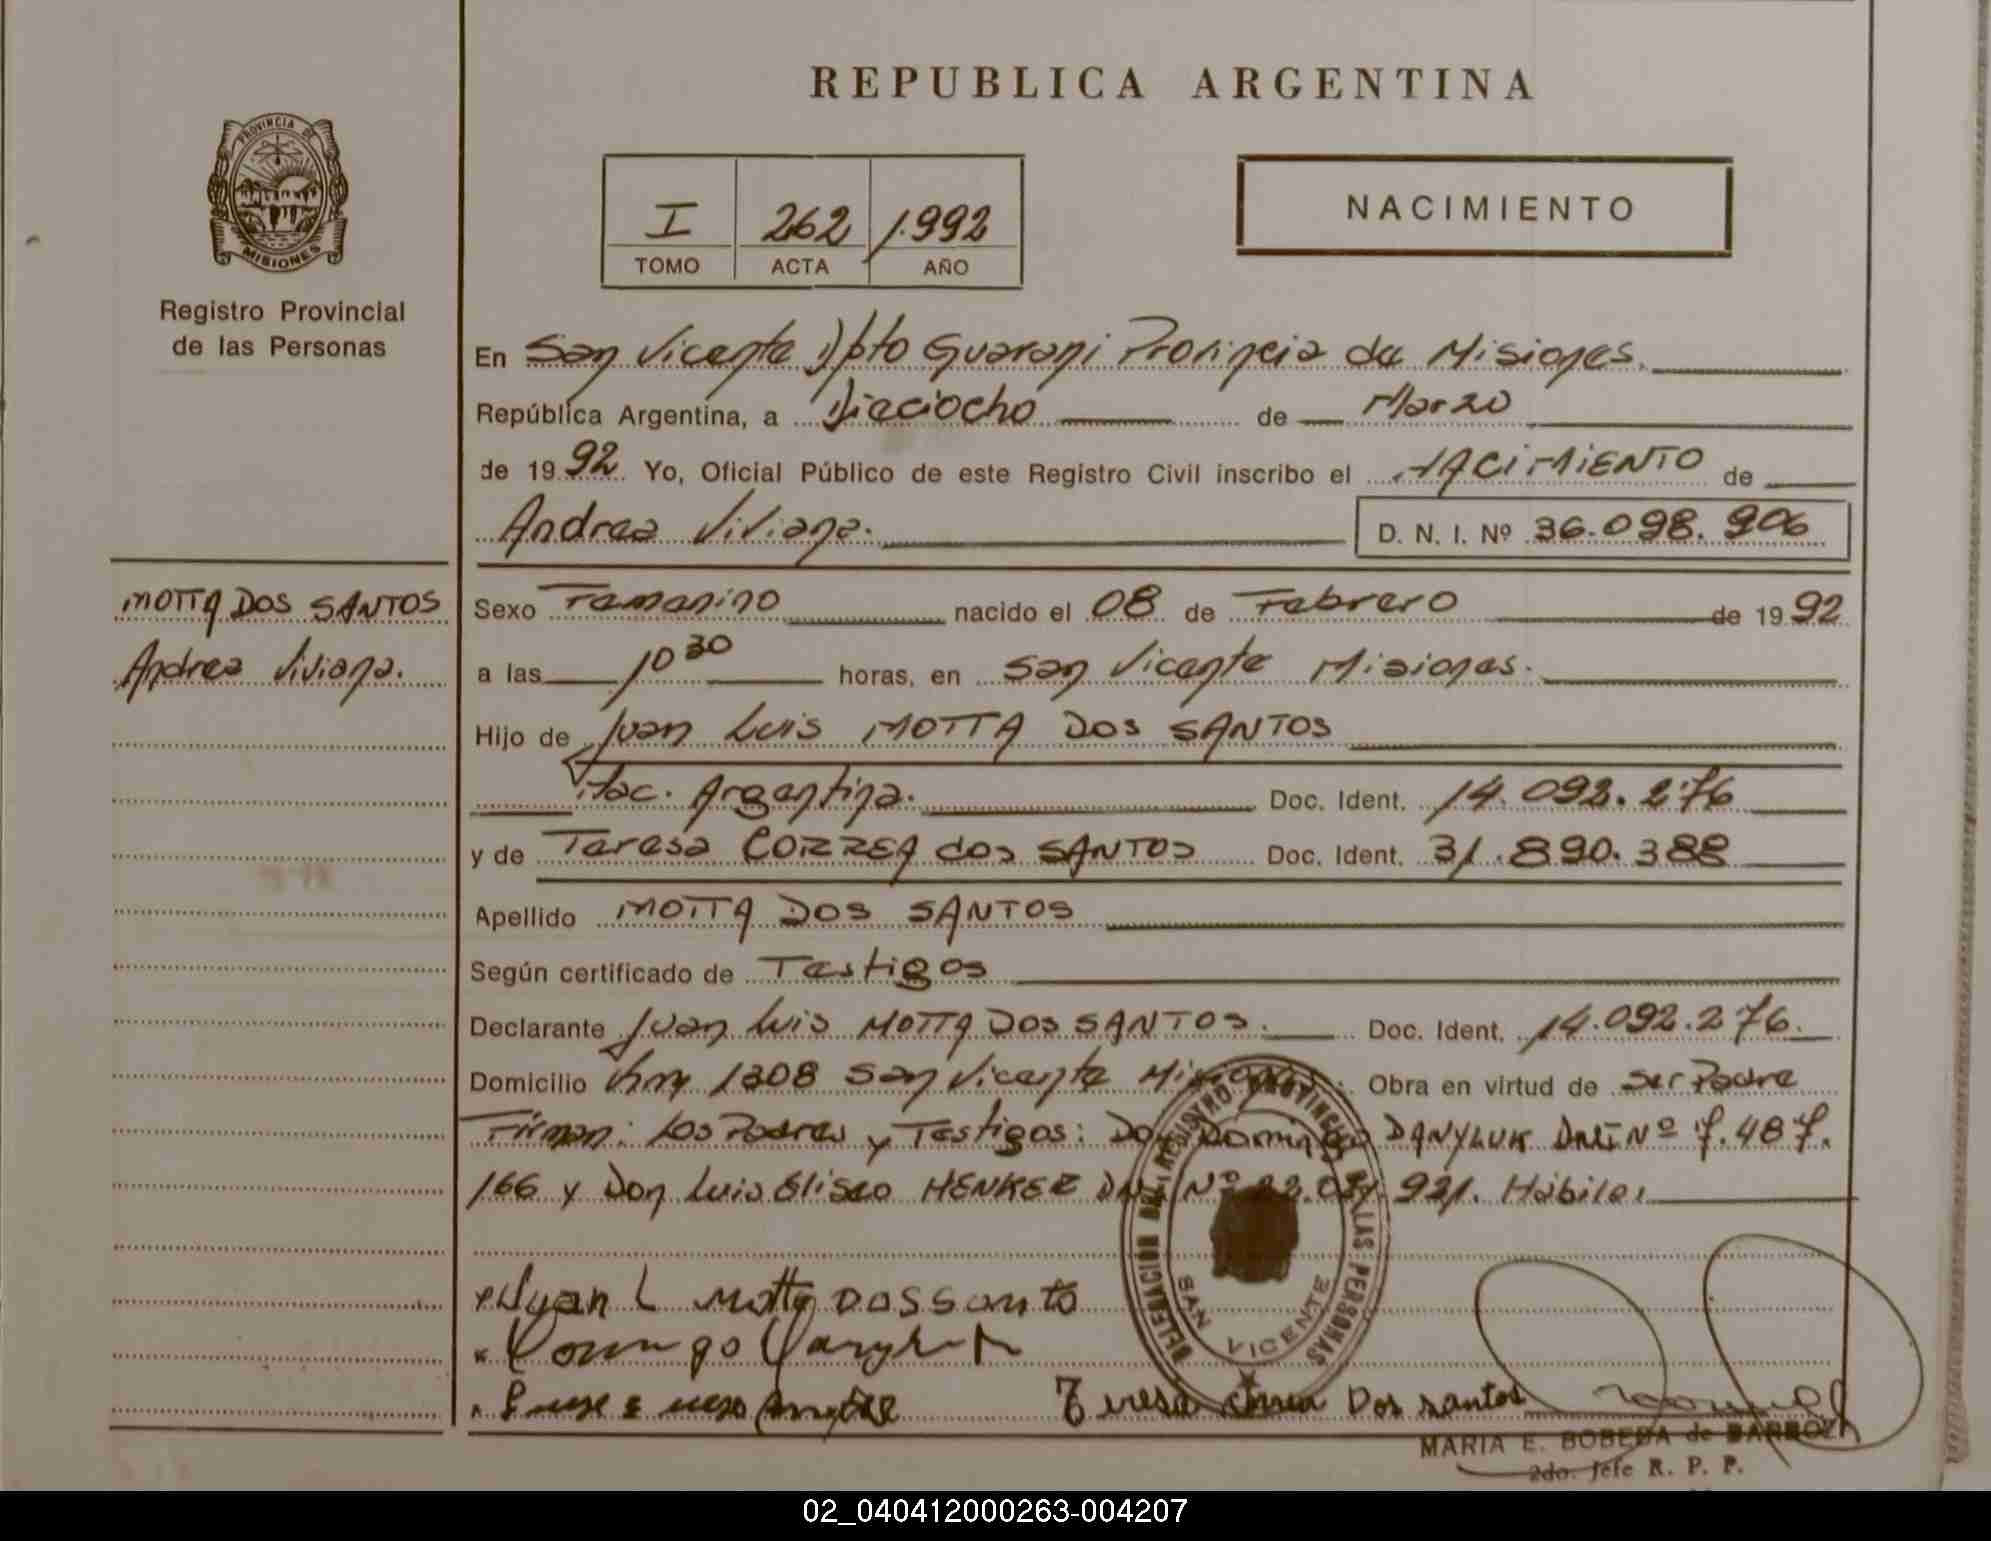 REPUBLICA ARGENTINA
PROVINCIA DE
MISIONES
Registro Provincial
de las Personas
I 262 1.992
TOMO ACTA AÑO
NACIMIENTO
En San Vicente Dpto Guarani Provincia de Misiones.
República Argentina, a Dieciocho de Marzo
de 1992. Yo, Oficial Público de este Registro Civil inscribo el NACIMIENTO de
Andrea Viviana. D. N. I. Nº 36.098.906
MOTTA DOS SANTOS
Andrea Viviana.
Sexo Femenino nacido el 08 de Febrero de 1992
a las 10 30 horas, en San Vicente Misiones.
Hijo de Juan Luis MOTTA DOS SANTOS
Nac. Argentina. Doc. Ident. 14.092.276
y de Teresa CORREA dos SANTOS Doc. Ident. 31.890.388
Apellido MOTTA DOS SANTOS
Según certificado de Testigos
Declarante Juan Luis MOTTA DOS SANTOS. Doc. Ident. 14.092.276.
Domicilio Km 1308 San Vicente Misiones. Obra en virtud de Ser Padre
Firman: Los Padres y Testigos: Don Domingo DANYLUK DNI Nº 7.487.
166 y Don Luis Eliseo HENKER DNI Nº 931. Habiles
DELEGACION DEL REGISTRO PROVINCIAL DE LAS PERSONAS
SAN VICENTE
Juan L Motta Dos Santo
Domingo Danyluk
Teresa Correa Dos santos
MARIA E. BOBEDA de BARBOZA
2do. Jefe R. P. P.
02_040412000263-004207